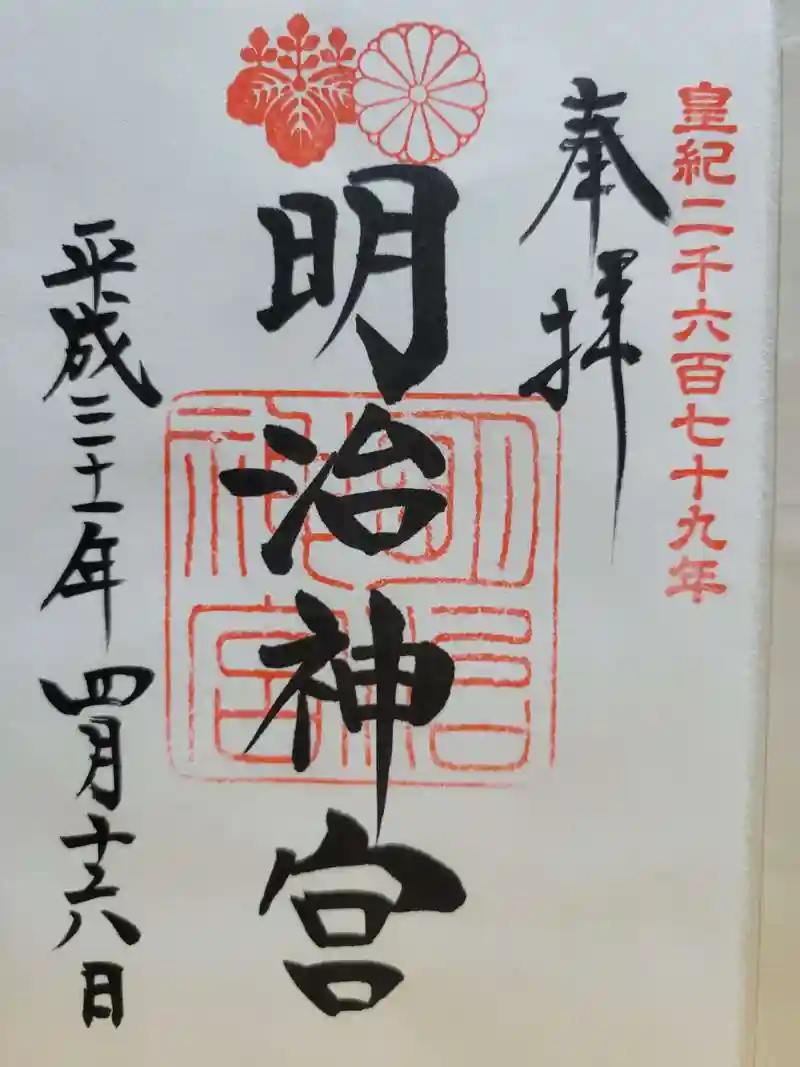 皇紀二千六百七十九年
奉拝
明治神宮
明治
神宮
平成三十一年四月十六日